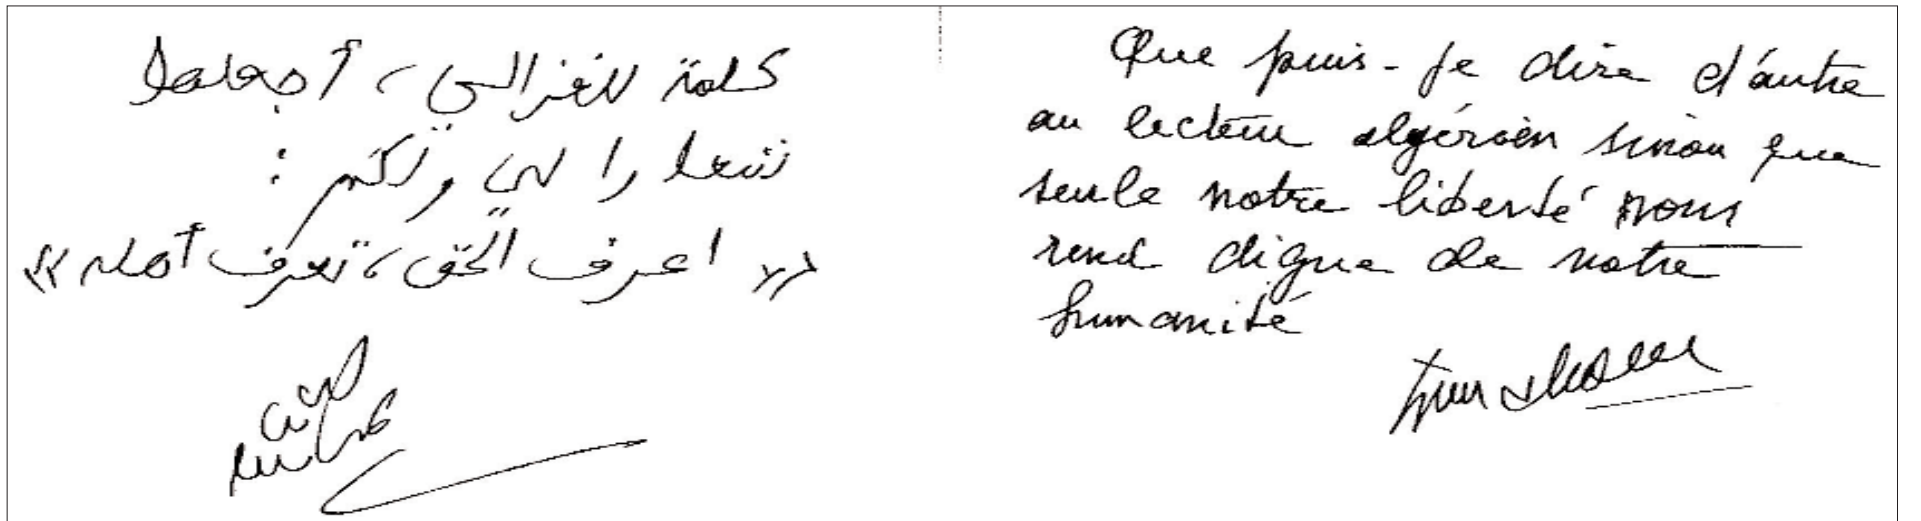 كلمة للغزالي، أجعلها
شعارا لي ولكم :
«اعرف الحق، تعرف أهله»
Que puis-je dire d'autre
au lecteur algérien sinon que
seule notre liberté nous
rend digne de notre
humanité